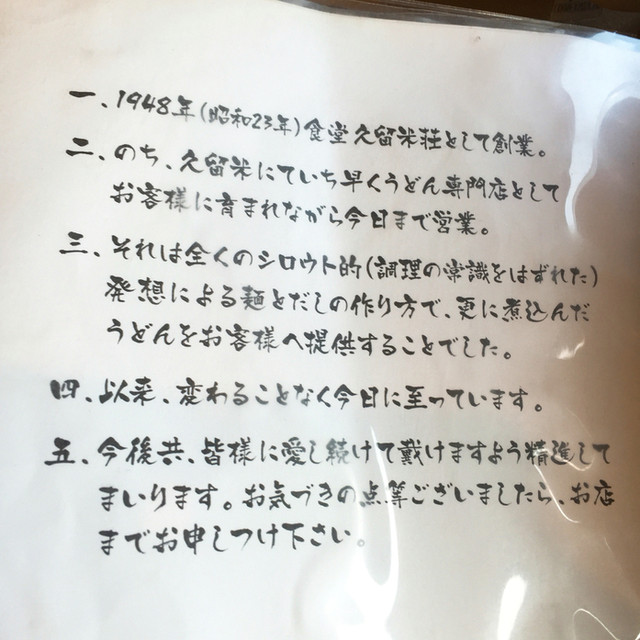 一、1948年(昭和23年)食堂久留米荘として創業。
二、のち、久留米にていち早くうどん専門店として
お客様に育まれながら今日まで営業。
三、それは全くのシロウト的(調理の常識をはずれた)
発想による麺とだしの作り方で、更に煮込んだ
うどんをお客様へ提供することでした。
四、以来、変わることなく今日に至っています。
五、今後共、皆様に愛し続けて戴けますよう精進して
まいります。お気づきの点等ございましたら、お店
までお申しつけ下さい。